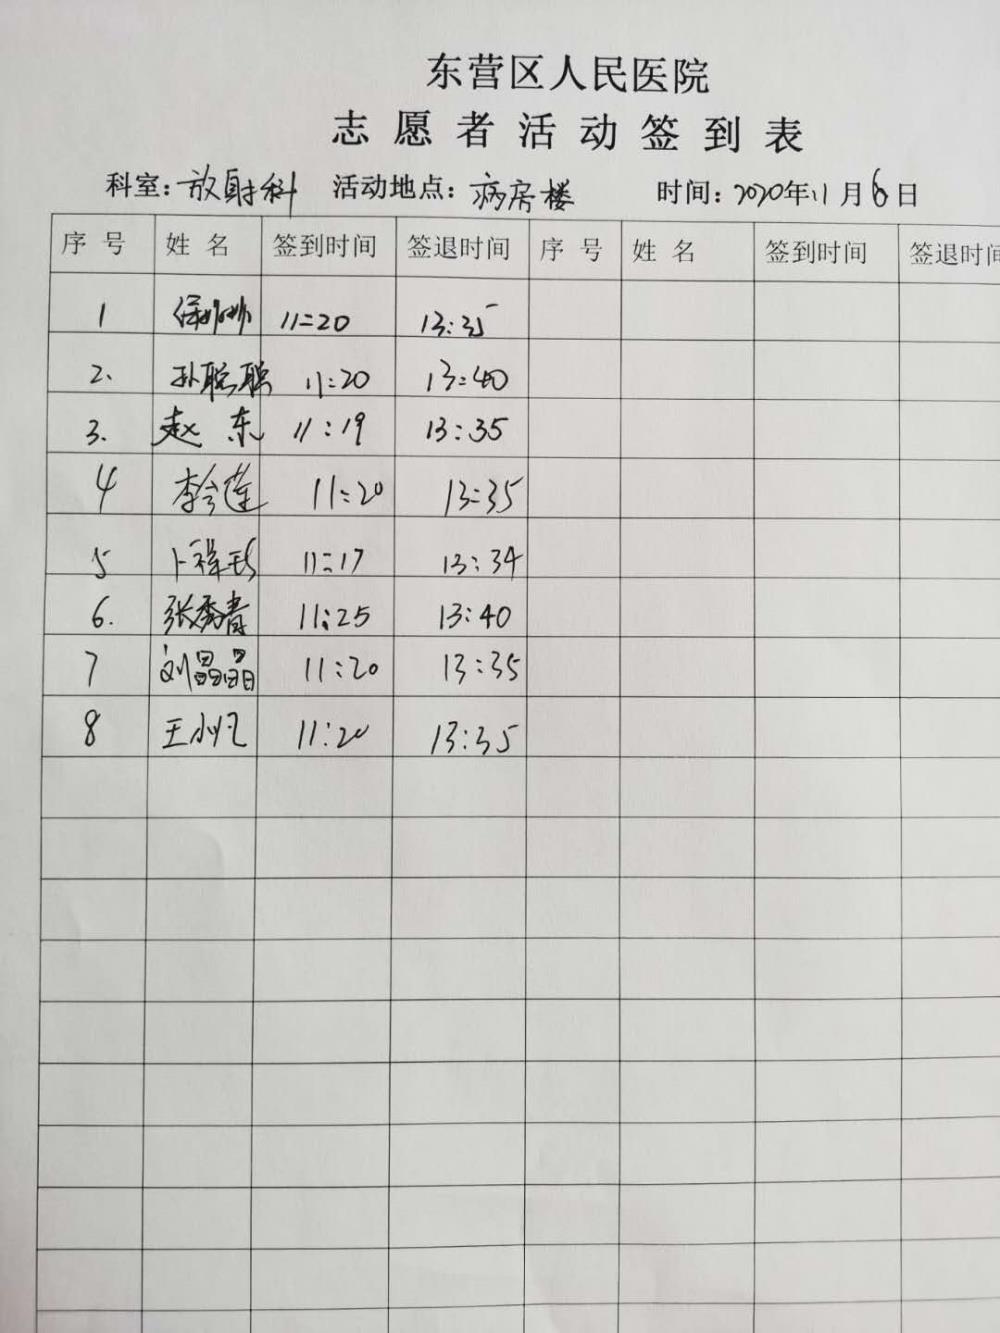 东营区人民医院
志愿者活动签到表
科室：放射科 活动地点：病房楼 时间：2020年11月6日
序号 姓名 签到时间 签退时间 序号 姓名 签到时间 签退时间
1 11=20 13:35
2. 孙聪聪 11:20 13:40
3. 赵东 11:19 13:35
4 李今莲 11:20 13:35
5 11:17 13:34
6. 张秀青 11:25 13:40
7 刘晶晶 11:20 13:35
8 王小凡 11:20 13:35